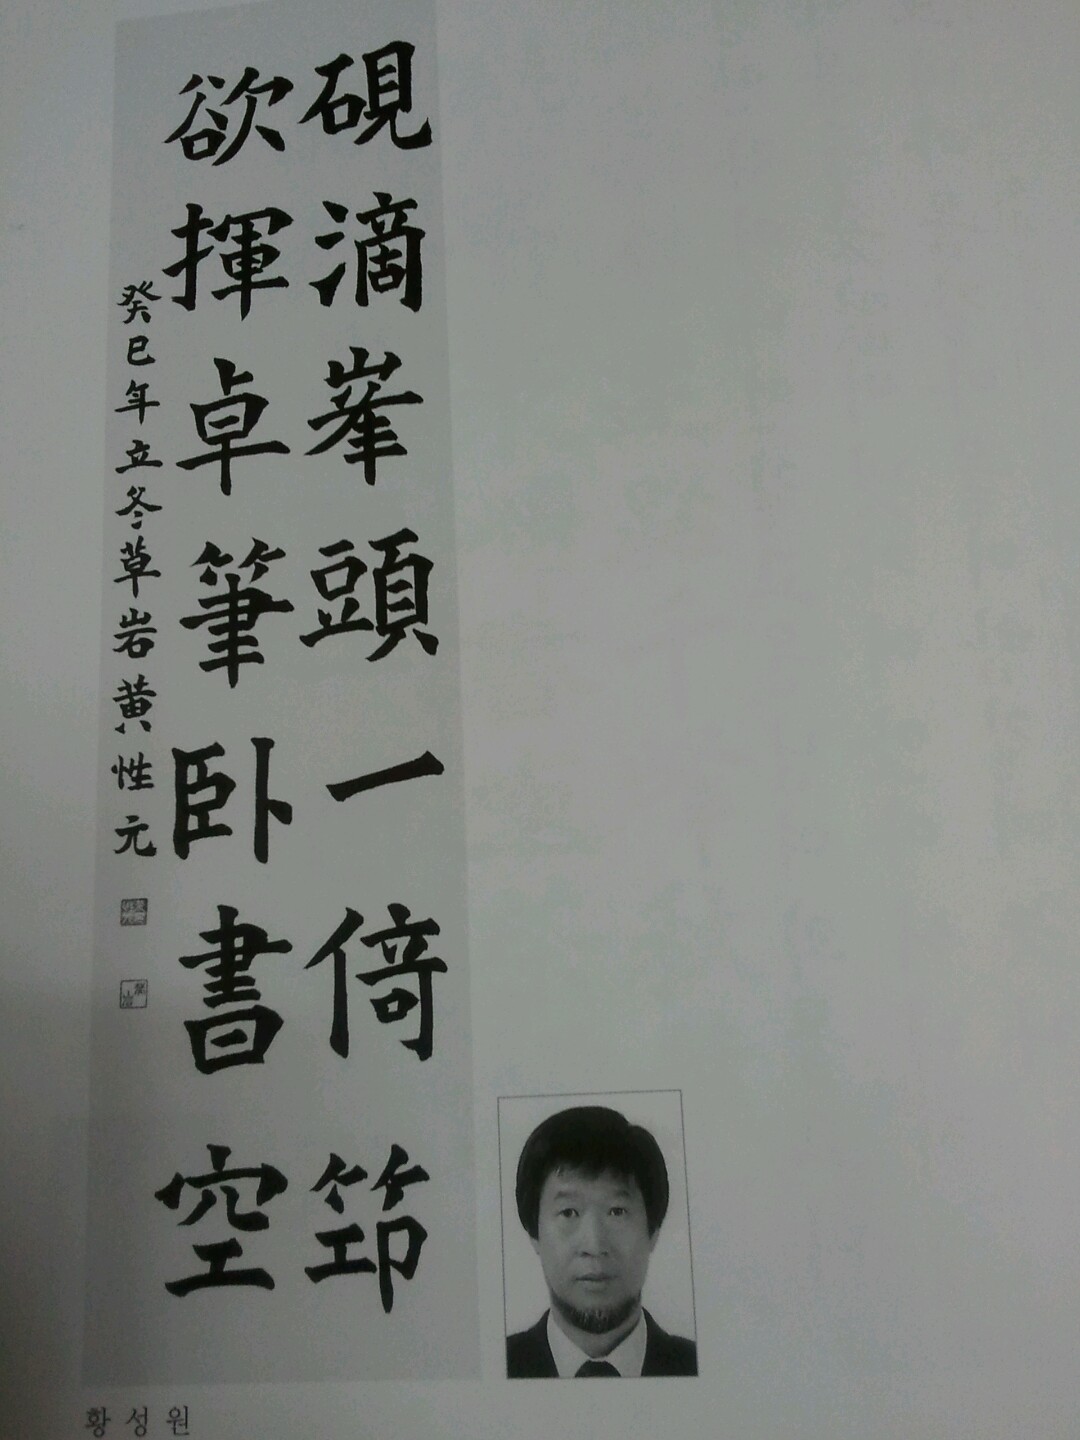 硯滴峯頭一倚笻
欲揮卓筆臥書空
癸巳年立冬草岩黃性元
황성원